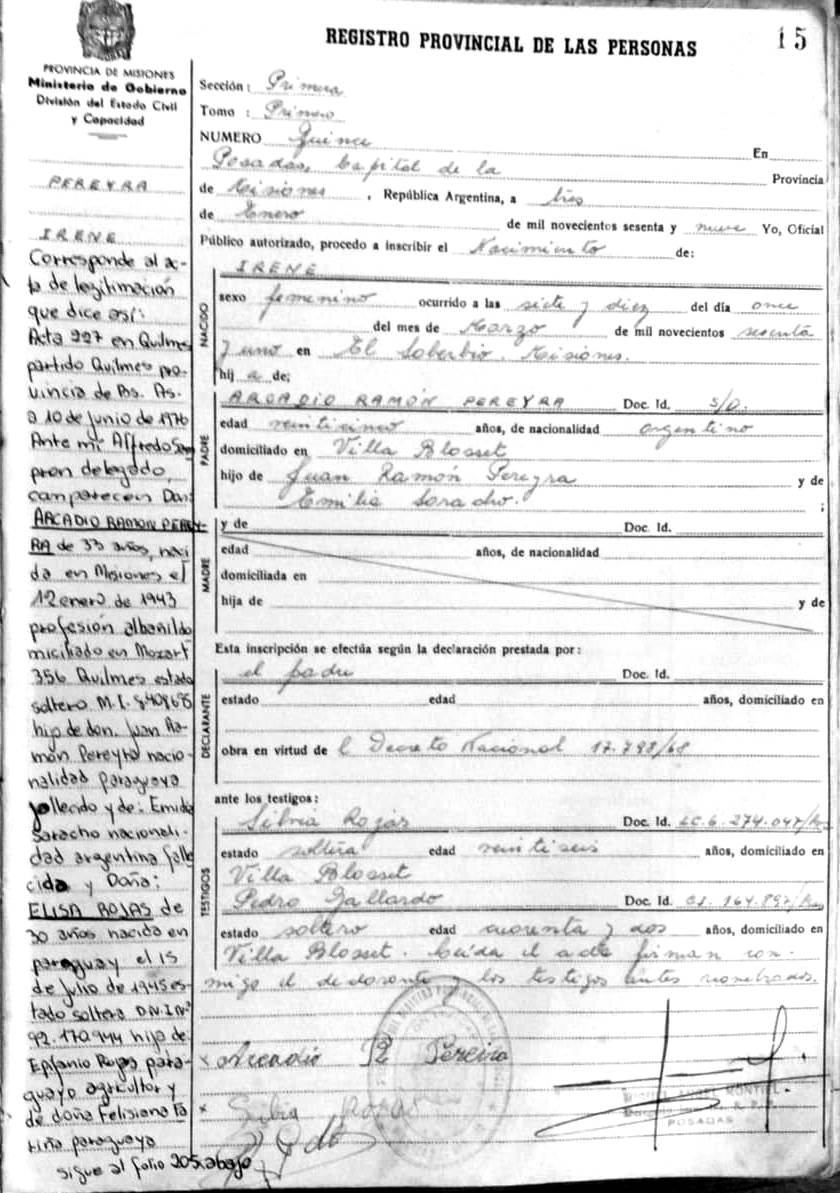 REGISTRO PROVINCIAL DE LAS PERSONAS
15
PROVINCIA DE MISIONES
Ministerio de Gobierno
División del Estado Civil
y Capacidad
PEREYRA
IRENE
Corresponde al ac-
ta de legitimación
que dice así:
Acta 227 en Quilmes
partido Quilmes pro-
vincia de Bs. As.
a 10 de Junio de 1976
Ante mi Alfredo
delegado,
comparecen Don:
ARCADIO RAMON PEREY-
RA de 33 años, naci
da en Misiones el
12 enero de 1943
profesión albañil do
miciliado en Mozart
356 Quilmes estado
soltero M.I. 8.408.68
hijo de don. Juan Ra-
món Pereyra nacio-
nalidad paraguaya
fallecido y de: Emilia
Saracho nacionali-
dad argentina falle
cida y Doña:
ELISA ROJAS de
30 años nacida en
paraguay el 15
de Julio de 1945 es-
tado soltera DN.I Nº
92.170.944 hija de
Epifanio Rojas para-
guayo agricultor y
de doña Felisiana Fa
riña paraguaya
sigue al folio 205 abajo
Sección: Primera
Tomo : Primero
NUMERO Quince En
Posadas, Capital de la Provincia
de Misiones, República Argentina, a tres
de Enero de mil novecientos sesenta y nueve Yo, Oficial
Público autorizado, procedo a inscribir el Nacimiento de:
NACIDO
IRENE
sexo femenino ocurrido a las siete y diez del día once
del mes de Marzo de mil novecientos sesenta
y uno en El Soberbio. Misiones.
hij a de;
PADRE
ARCADIO RAMÓN PEREYRA Doc. Id. S/D.
edad veinticinco años, de nacionalidad argentino
domiciliado en Villa Blosset
hijo de Juan Ramón Pereyra y de
Emilia Saracho. ;
MADRE
y de Doc. Id.
edad años, de nacionalidad
domiciliada en
hija de y de
Esta inscripción se efectúa según la declaración prestada por:
DECLARANTE
el padre Doc. Id.
estado edad años, domiciliado en
obra en virtud de l Decreto Nacional 17.798/68
ante los testigos:
TESTIGOS
Silvia Rojas Doc. Id. LC.6.274.047
estado soltera edad veintiseis años, domiciliado en
Villa Blosset
Pedro Gallardo Doc. Id. CI. 164.897
estado soltero edad cuarenta y dos años, domiciliado en
Villa Blosset. Leida el acta firman con-
migo el declarante y los testigos antes nombrados.
Arcadio R Pereira
Silvia Rojas
ANGEL MONTIEL
POSADAS